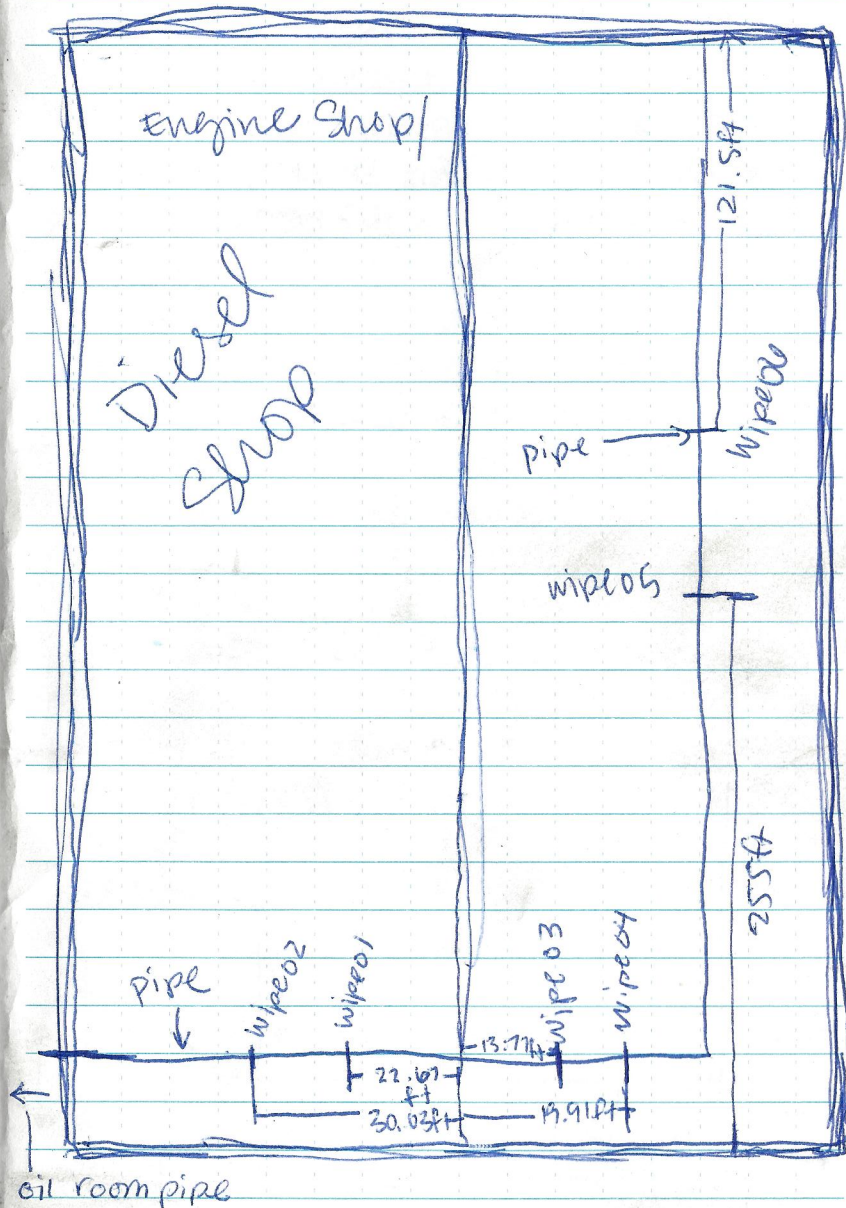 Engine Shop/
Diesel
Shop
121.5ft
Wipe06
pipe
wipe05
255ft
pipe
Wipe02
Wipe01
Wipe03
Wipe04
13.77ft
22.67
ft
30.03ft
19.91ft
oil room pipe